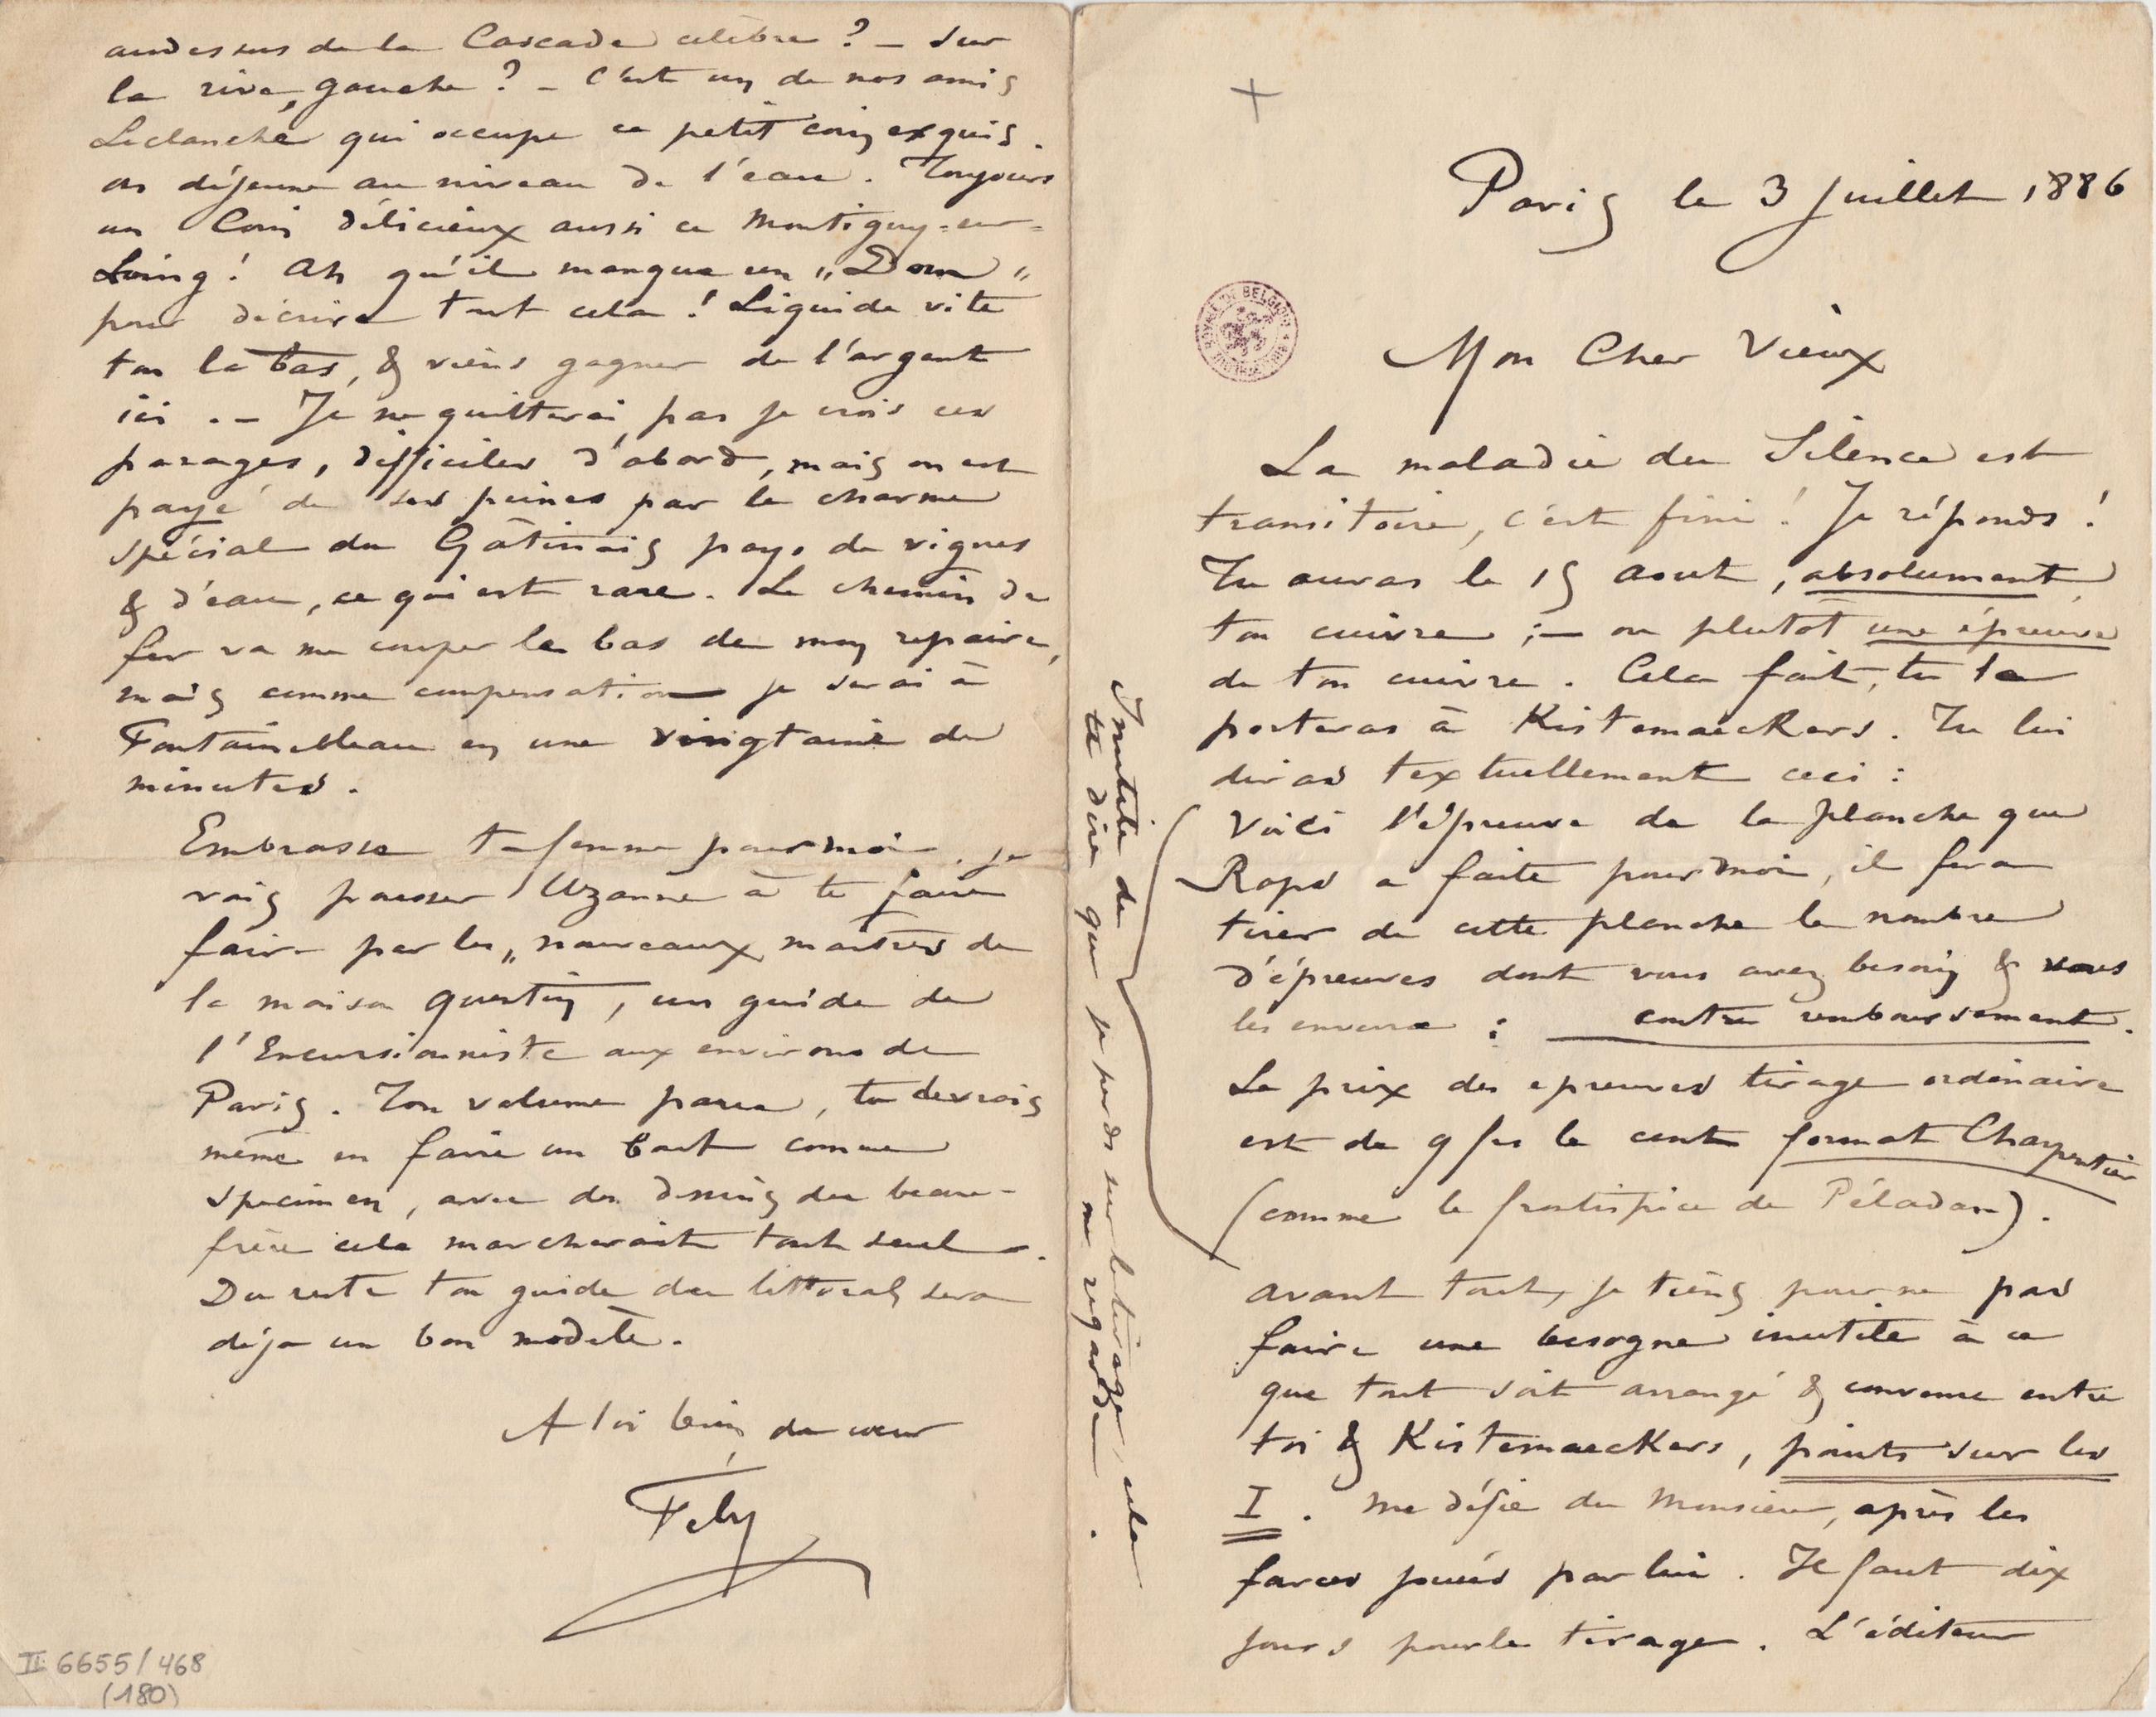 Paris le 3 Juillet 1886
Mon Cher Vieux
La maladie du Silence est
transitoire, c'est fini ! Je réponds !
Tu auras le 15 Aout, absolument,
ton cuivre ; — ou plutot une épreuve
de ton cuivre. Cela fait, tu la
porteras à Kistemaeckers. Tu lui
diras textuellement ceci :
Voici l'épreuve de la planche que
Rops a faite pour moi, il fera
tirer de cette planche le nombre
d'épreuves dont vous avez besoin & vous
les enverra : contre remboursement.
Le prix des epreuves tirage ordinaire
est de 9 frs le cent format Charpentier
(comme le frontispice de Péladan).
avant tout, je tiens pour ne pas
faire une besogne inutile à ce
que tout soit arrangé & convenu entre
toi & Kistemaeckers, points sur les
I. me défie du Monsieur, après les
farces jouées par lui. Il faut dix
jours pour le tirage. L'éditeur
Inutile de
te dire que je perds sur le tirage, cela
me regarde.
audessus de la Cascade célèbre ? — Sur
la rive gauche ? — C'est un de nos amis
Leclanché qui occupe ce petit coin exquis.
on déjeune au niveau de l'eau. Toujours
un Coin délicieux aussi ce Montigny-sur-
Loing ! Ah qu'il manque un „Dom"
pour décrire tout cela ! Liquide vite
ton la bas, & viens gagner de l'argent
ici. — Je ne quitterai pas je crois ces
parages, difficiles d'abord, mais on est
payé de ses peines par le charme
spécial du Gâtinais pays de vignes
& d'eau, ce qui est rare. Le chemin de
fer va me couper le bas de mon repaire,
mais comme compensation je serai à
Fontainebleau en une vingtaine de
minutes.
Embrasse ta femme pour moi. je
vais pousser Uzanne à te faire
faire par les „nouveaux maitres de
la maison Quantin, un guide de
l'Excursionniste aux environs de
Paris. Ton volume paru, tu devrais
même en faire un bout comme
specimen, avec des dessins du beau-
frère cela marcherait tout seul.
Du reste ton guide du littoral sera
déja un bon modèle.
A toi bien du coeur
Fély
II 6655/468
(180)